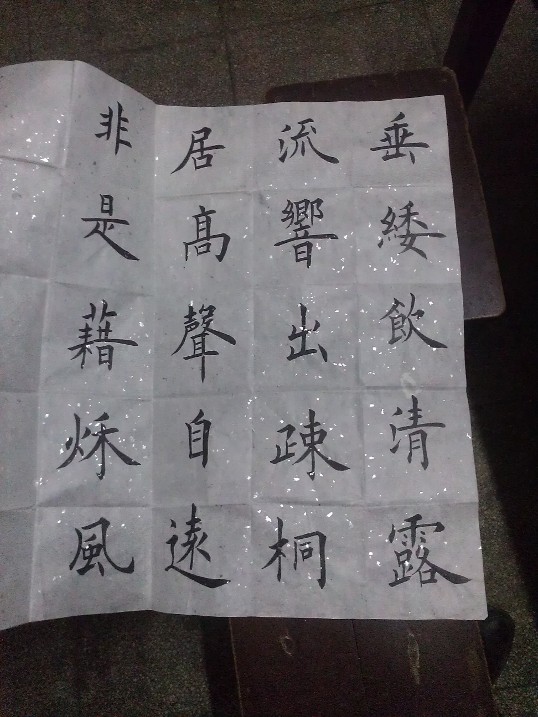 垂緌飲清露
流響出疎桐
居髙聲自遠
非是藉秌風